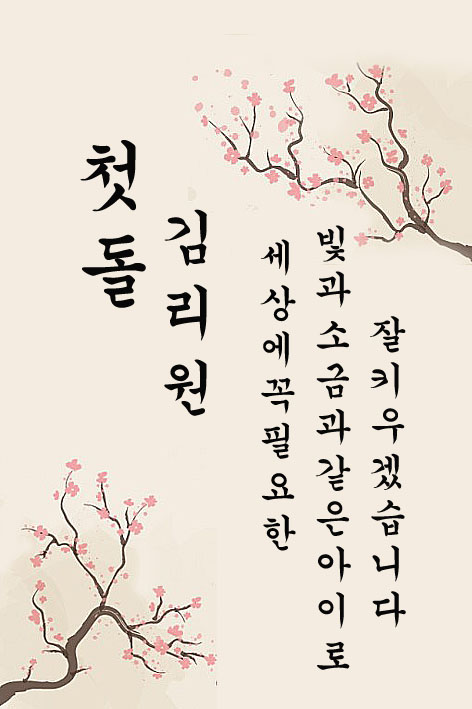 첫돌
김리원
세상에꼭필요한
빛과소금과같은아이로
잘키우겠습니다